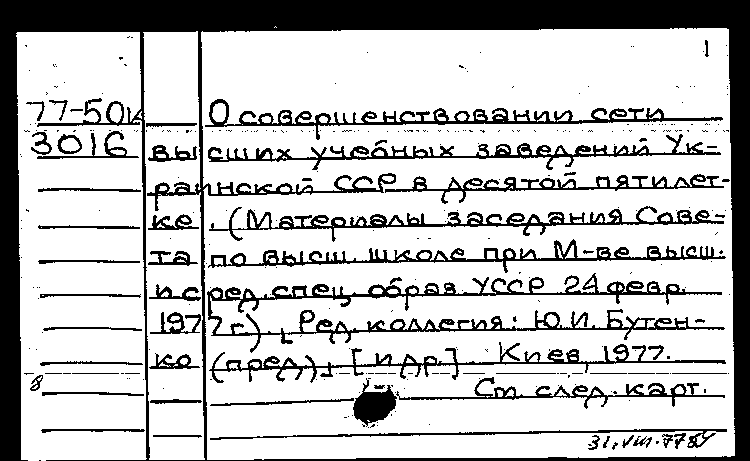 1
77-50к О совершенствовании сети
3016 высших учебных заведений Ук-
раинской ССР в десятой пятилет-
ке. (Материалы заседания Сове-
та по высш. школе при М-ве высш.
и сред. спец. образ. УССР 24 февр.
1977 г.). Ред. коллегия: Ю.И. Бутен-
ко (пред), [и др.] Киев, 1977.
8 См. след. карт.
31.VIII.77